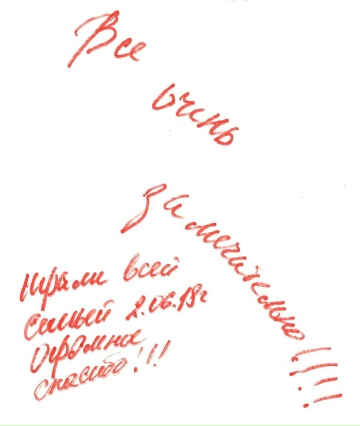 Все
очень
замечательно!!!!
Играли всей
семьей 2.06.19г
Огромное
спасибо!!!